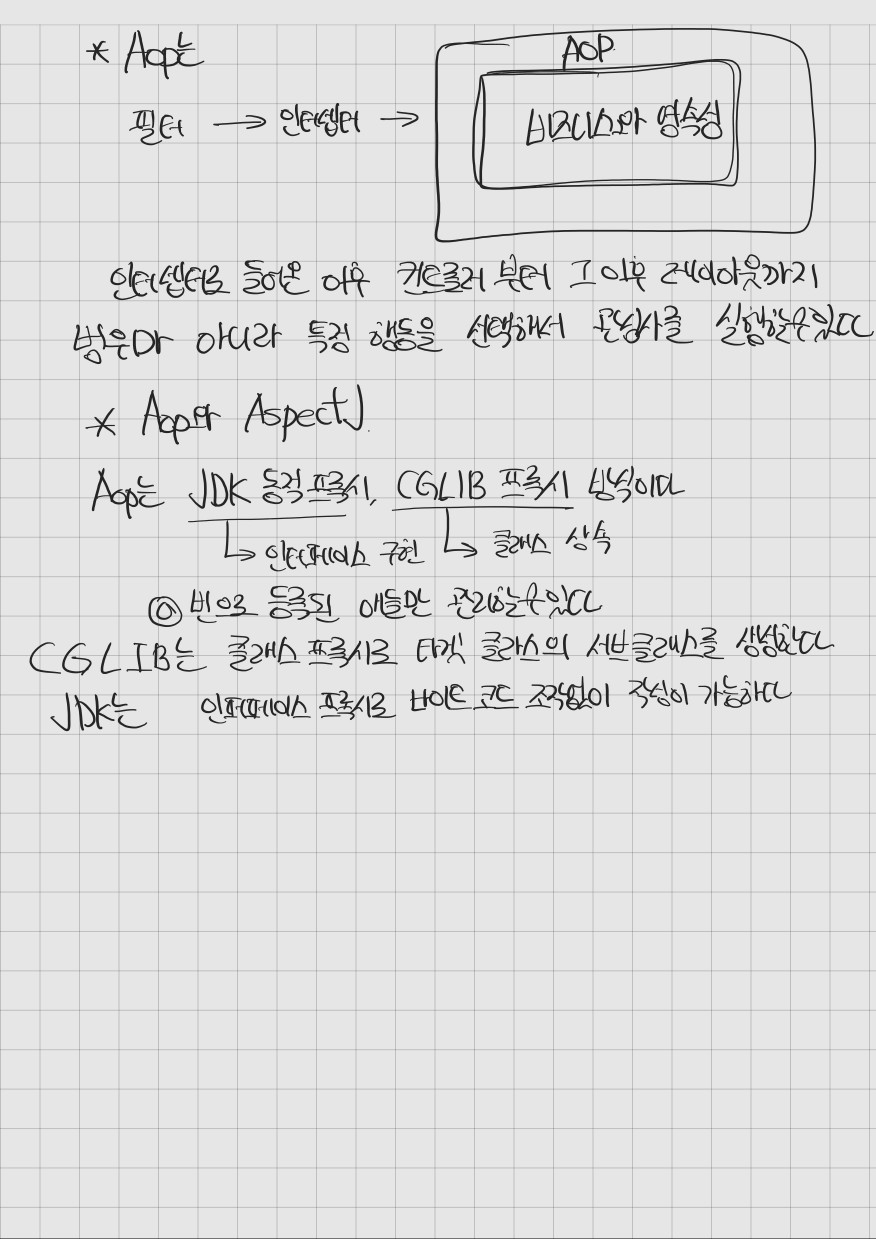 * Aop는
AOP
필터 → 인터셉터 → 비즈니스와 영속성
인터셉터로 들어온 이후 컨트롤러 부터 그 이후 레이아웃까지
범위다 아니라 특정 행동을 선택해서 관심사를 실행할수있다
* Aop와 AspectJ
Aop는 JDK 동적 프록시, CGLIB 프록시 방식이다
↳ 인터페이스 구현 ↳ 클래스 상속
◎ 빈으로 등록된 애들만 관리할수있다
CGLIB는 클래스 프록시로 타겟 클래스의 서브클래스를 생성한다
JDK는 인터페이스 프록시로 바이트 코드 조작없이 작성이 가능하다